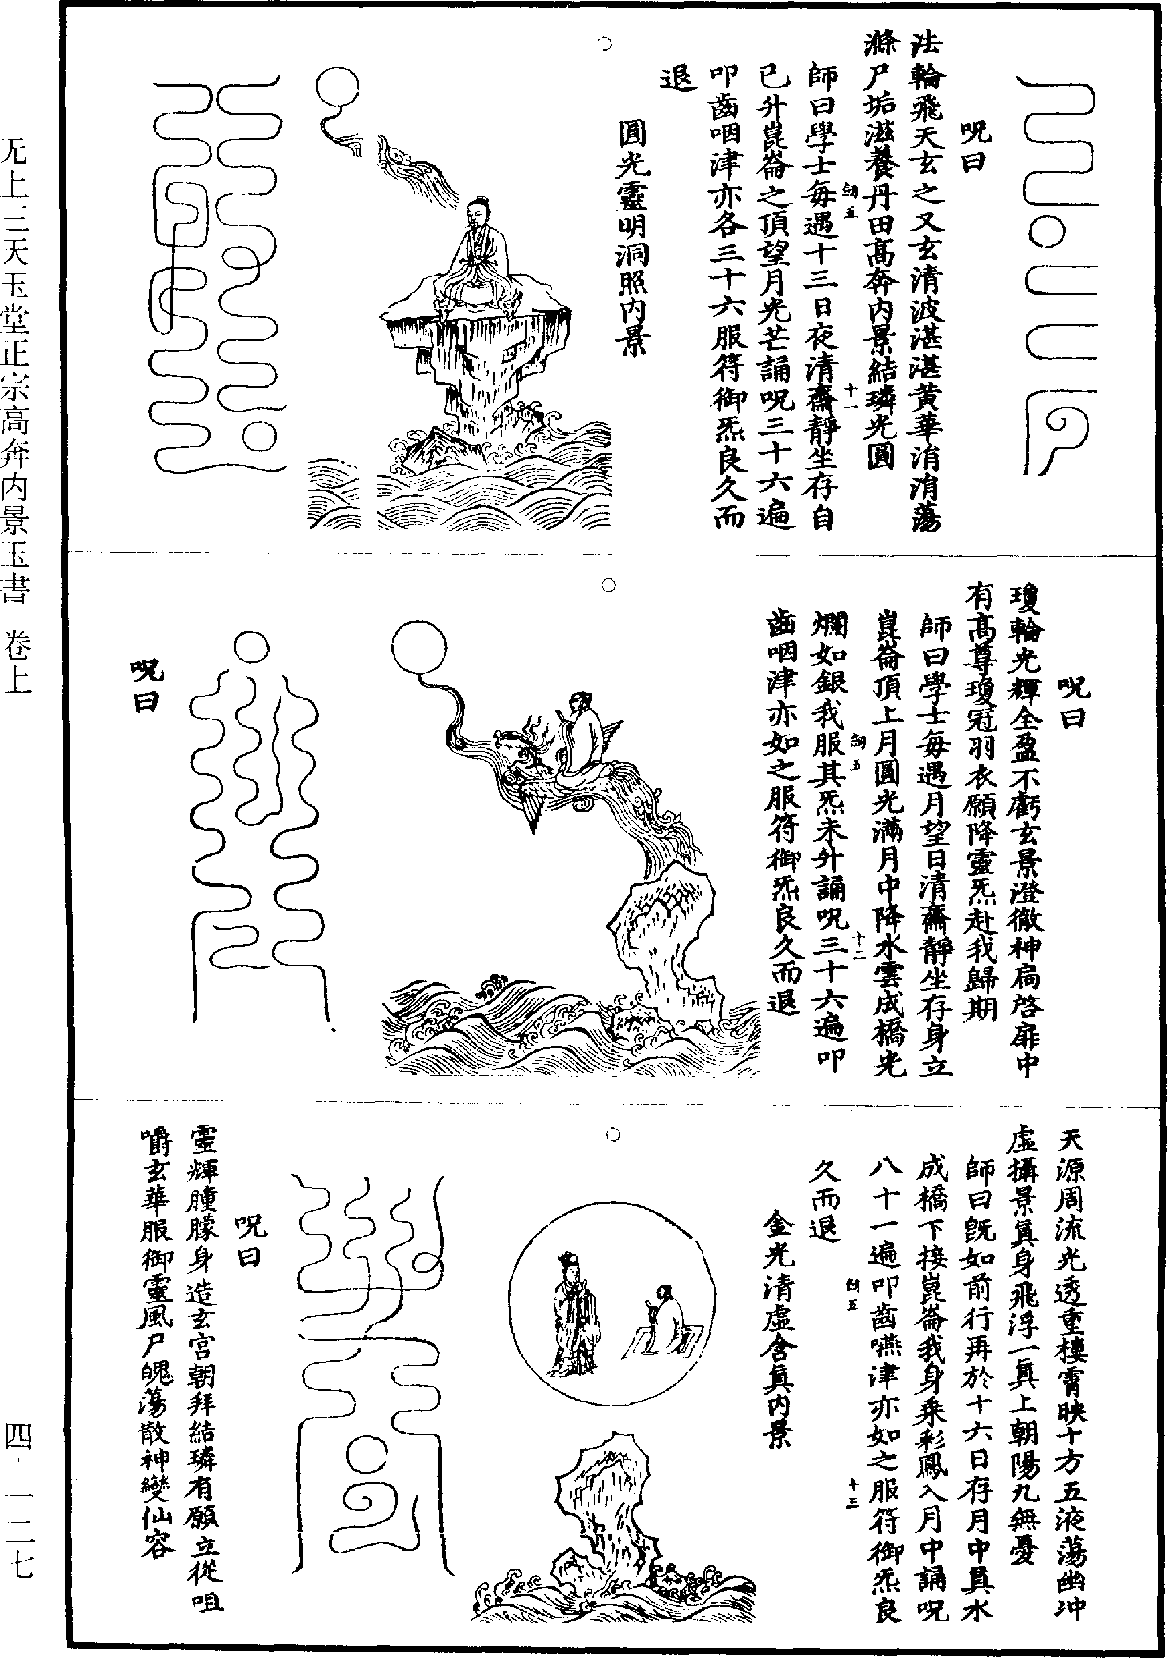 呪曰
法輪飛天玄之又玄清波湛湛黃華湑湑蕩
滌尸垢滋養丹田高奔內景結璘光圓
師曰學士每遇十三日夜清齋靜坐存自
已升崑崙之頂望月光芒誦呪三十六遍
叩齒咽津亦各三十六服符御炁良久而
退
圓光靈明洞照內景
呪曰
瓊輪光輝全盈不虧玄景澄徹神扃啓扉中
有高尊瓊冠羽衣願降靈炁赴我歸期
師曰學士每遇月望日清齋靜坐存身立
崑崙頂上月圓光滿月中降水雲成橋光
爛如銀我服其炁未升誦呪三十六遍叩
齒咽津亦如之服符御炁良久而退
呪曰
天源周流光透重樓霄映十方五液蕩幽沖
虛攝景真身飛浮一真上朝陽九無憂
師曰既如前行再於十六日存月中真水
成橋下接崑崙我身乘彩鳳入月中誦呪
八十一遍叩齒嚥津亦如之服符御炁良
久而退
金光清虛含真內景
呪曰
靈輝朣朦身造玄宮朝拜結璘有願立從咀
嚼玄華服御靈風尸魄蕩散神變仙容
无上三天玉堂正宗高奔內景玉書 卷上
四·一二七